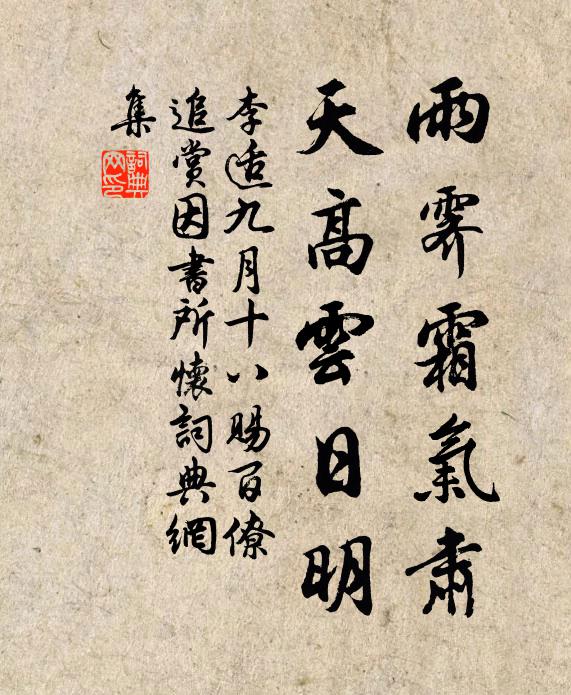 雨霽霜氣肅
天高雲日明
李适九月十八賜百僚
追賞因書所懷詞典網
集
詞典網印